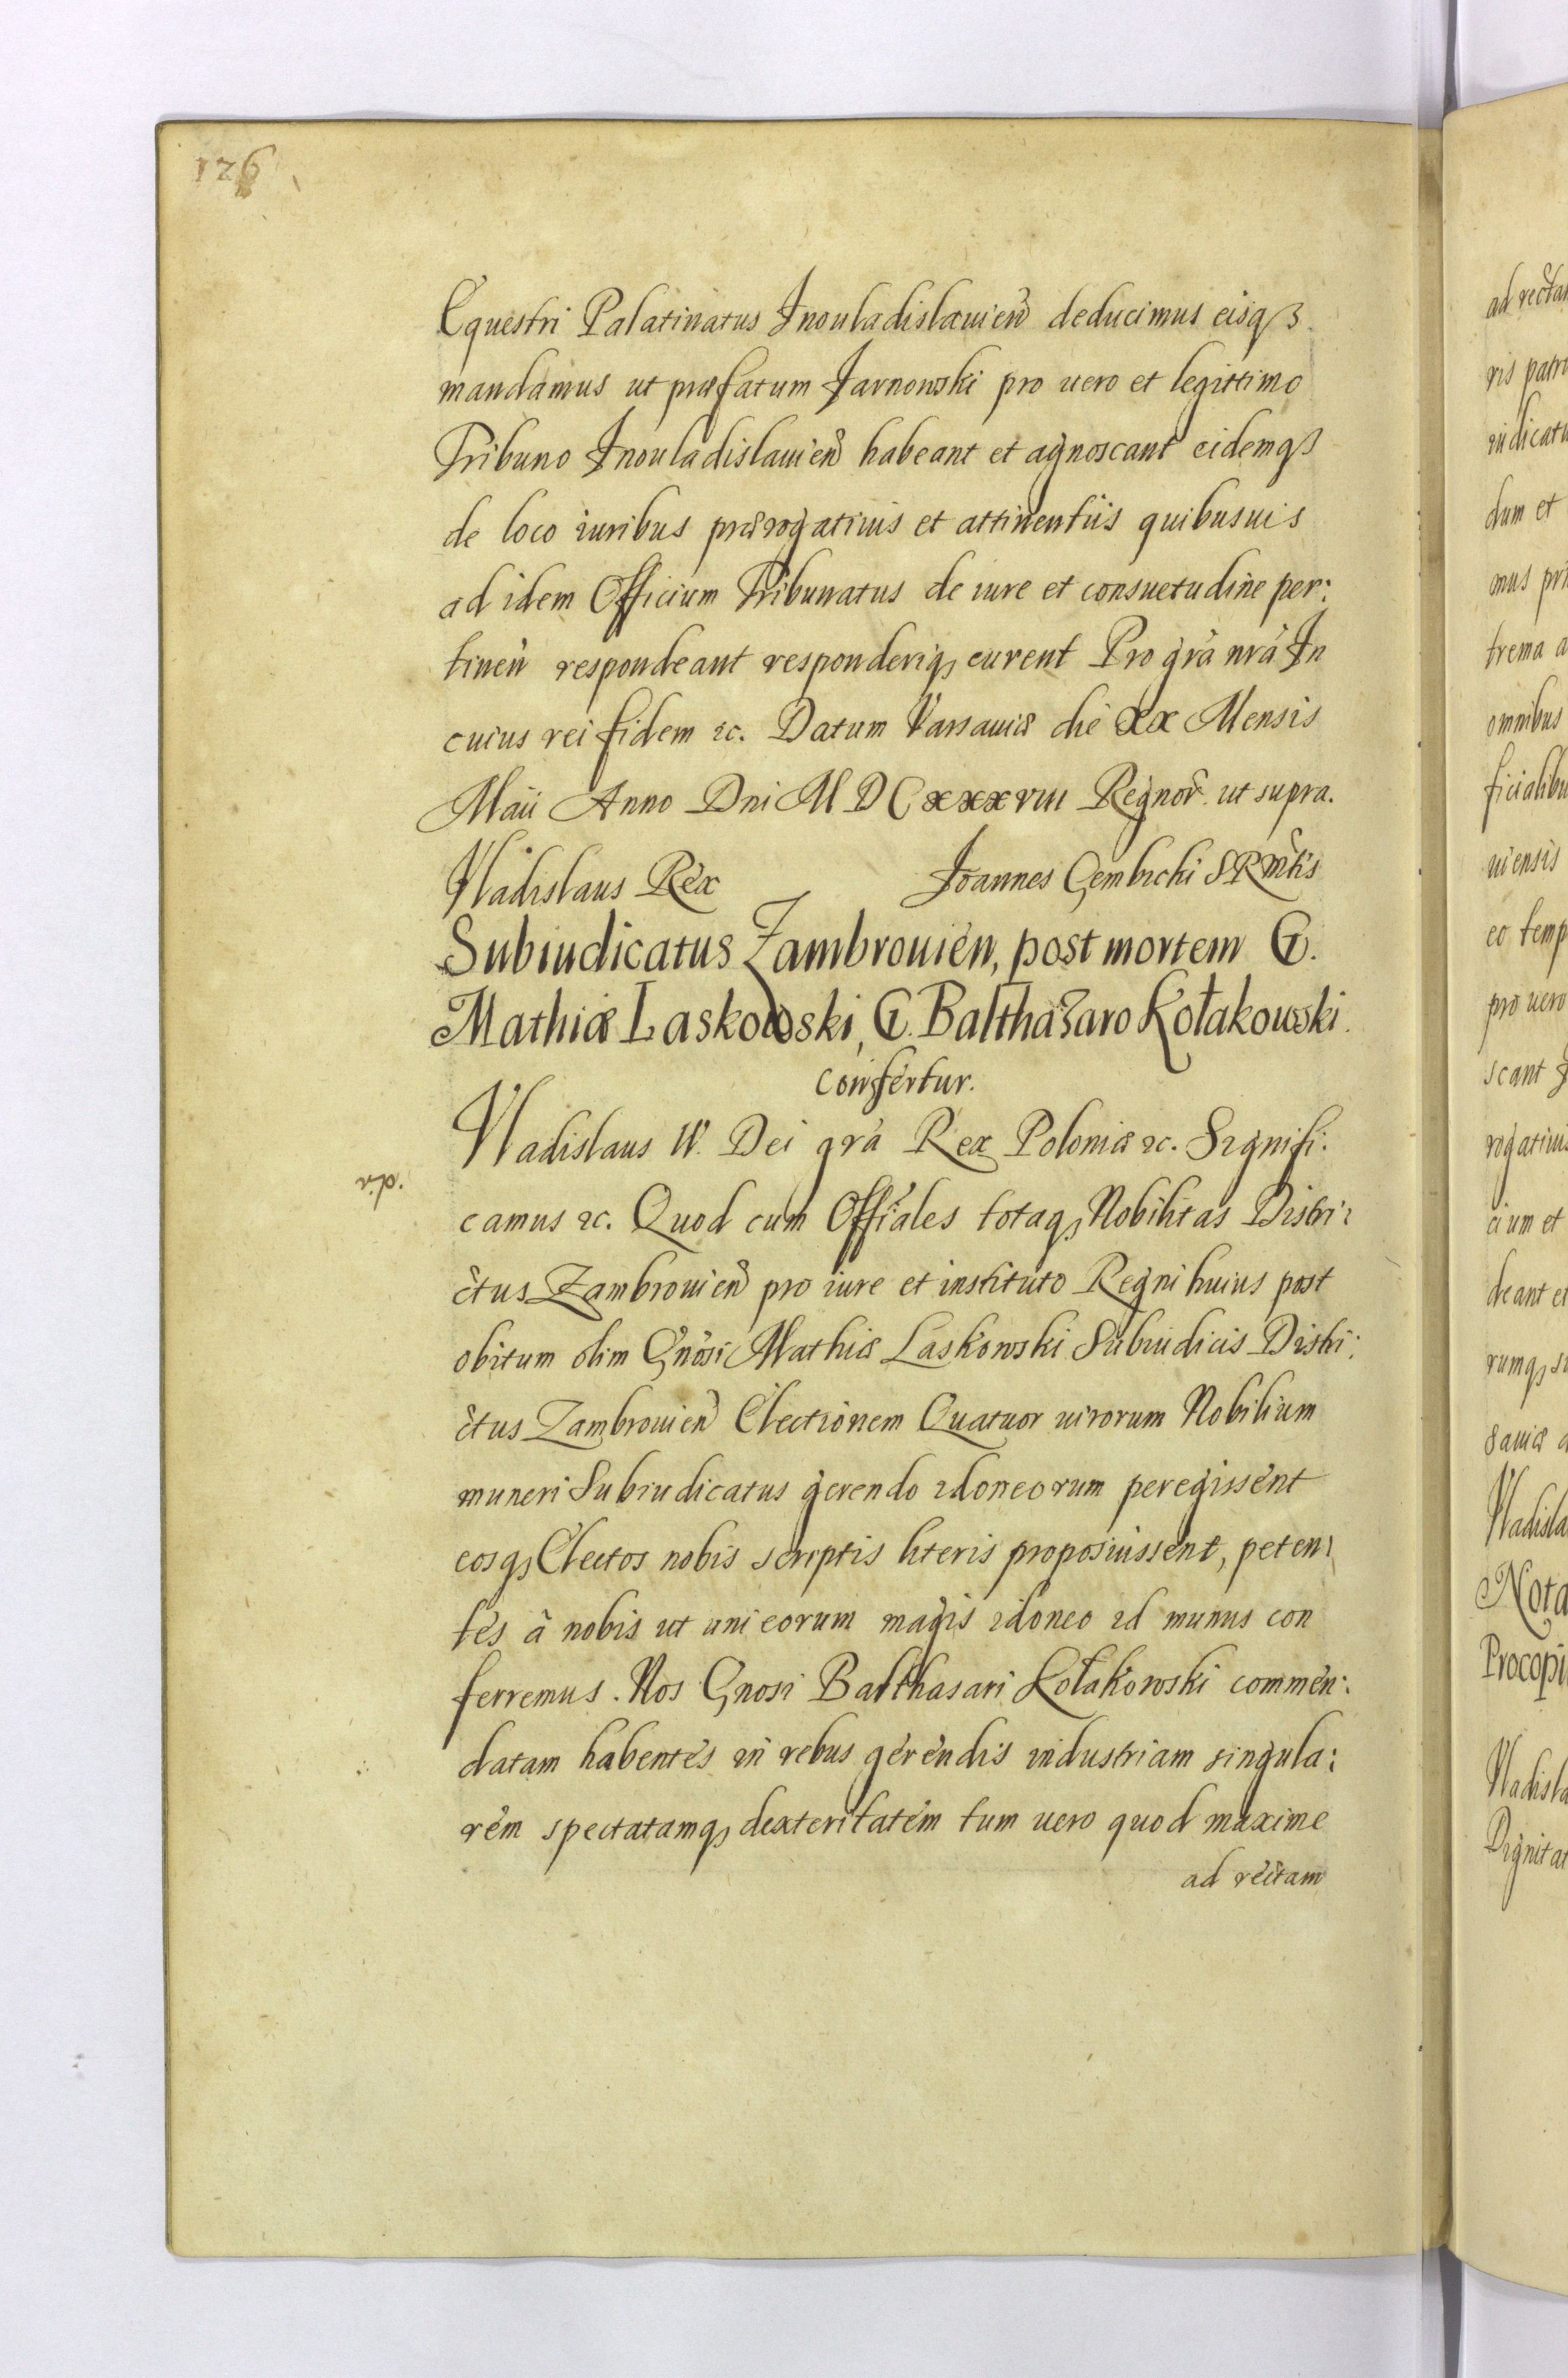 126
Equestri Palatinatus Inouladislauien̄ deducimus eisqꝫ
mandamus ut præfatum Jarnowski pro uero et legittimo
Tribuno Inouladislauien̄ habeant et agnoscant eidemqꝫ
de loco iuribus prærogatiuis et attinentiis quibusuis
ad idem Officium Tribunatus de iure et consuetudine per:
tineǹ respondeant responderiqꝫ curent Pro gr̃a nr̃a In
cuius rei fidem ꝛc. Datum Varsauiæ die XX Mensis
Maii Anno Dni M D C xxxviii Regnor̃ ut supra.
Vladislaus Rex Joannes Gembicki S R Mt̃is
Subiudicatus Zambrouien, post mortem G.
Mathiæ Laskowski, G. Balthazaro Kołakowski
confertur.
Vladislaus IV. Dei gr̃a Rex Poloniæ ꝛc. Signifi:
camus ꝛc. Quod cum Offiales totaqꝫ Nobilitas Distri:
ctus Zambrouien̄ pro iure et instituto Regni huius post
obitum olim Gnosi Mathiæ Laskowski Subiudicis Distri:
ctus Zambrouien̄ Electionem Quatuor uirorum Nobilium
muneri Subiudicatus gerendo idoneorum peregissent
eosqꝫ Electos nobis scriptis literis proposuissent, peten:
tes à nobis ut uni eorum magis idoneo id munus con
ferremus. Nos Gnosi Balthasari Kołakowski commen:
datam habentes in rebus gerendis industriam singula:
rem spectatamqꝫ dexteritatem tum uero quod maxime
ad rectam